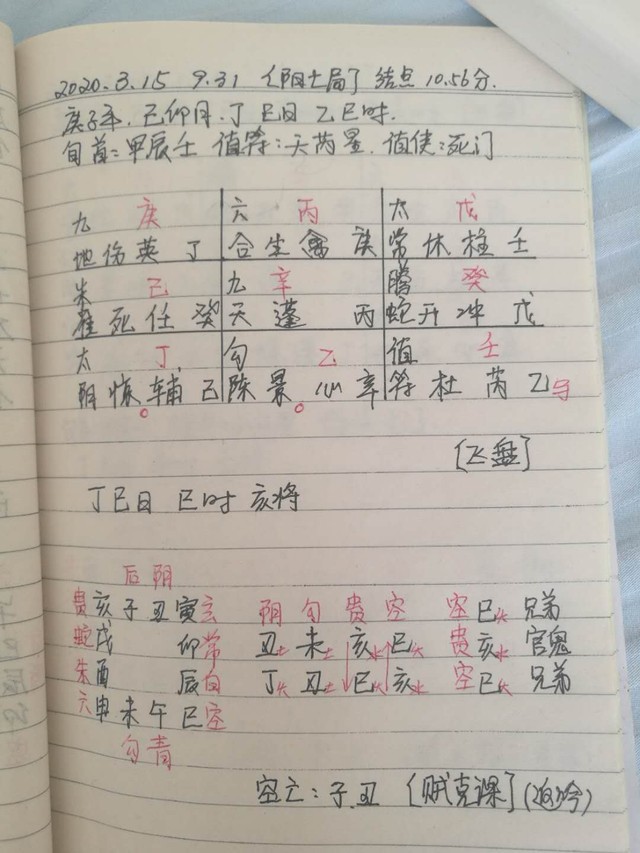 2020.3.15 9.31 〈阳七局〉 结点 10.56分.
庚子年. 己卯月. 丁巳日 乙巳时.
旬首:甲辰壬 值符:天芮星. 值使:死门
九 庚 六 丙 太 戊
地伤英丁 合生禽庚 常休柱壬
朱 己 九 辛 腾 癸
雀死任癸 天蓬 丙 蛇开冲戊
太 丁 勾 乙 值 壬
阴惊辅己 陈景心辛 符杜芮乙
[飞盘]
丁巳日 巳时 亥将
后阴
贵亥子丑寅玄 阴 勾 贵 空 空巳火 兄弟
蛇戌 卯常 丑土 未土 亥水 巳火 贵亥水 官鬼
朱酉 辰白 丁火 丑土 巳火 亥水 空巳火 兄弟
六申未午巳空
勾青
空亡:子.丑 [贼克课](返吟)